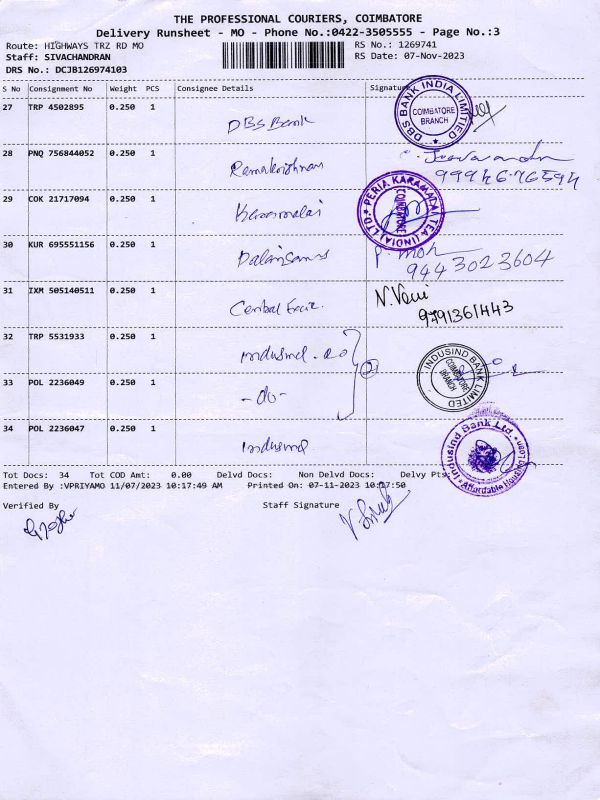 THE PROFESSIONAL COURIERS, COIMBATORE
Delivery Runsheet - MO - Phone No.:0422-3505555 - Page No.:3
Route: HIGHWAYS TRZ RD MO RS No.: 1269741
Staff: SIVACHANDRAN RS Date: 07-Nov-2023
DRS No.: DCJB126974103
S No Consignment No Weight PCS Consignee Details Signature
27 TRP 4502895 0.250 1 DBS Bank DBS BANK INDIA LIMITED COIMBATORE BRANCH
28 PNQ 756844052 0.250 1 Ramakrishnan
29 COK 21717094 0.250 1 PERIA KARAMALAI TEA (INDIA) LTD. COIMBATORE
30 KUR 695551156 0.250 1 P. Moh
9443023604
31 IXM 505140511 0.250 1 Central N. Veni
9791361443
32 TRP 5531933 0.250 1 Indusind INDUSIND BANK LIMITED COIMBATORE BRANCH
33 POL 2236049 0.250 1 -do- 2
34 POL 2236047 0.250 1 Indusind IndusInd Bank Ltd. Affordable Housing Loan
Tot Docs: 34 Tot COD Amt: 0.00 Delvd Docs: Non Delvd Docs: Delvy Pts:
Entered By :VPRIYAMO 11/07/2023 10:17:49 AM Printed On: 07-11-2023 10:17:50
Verified By Staff Signature